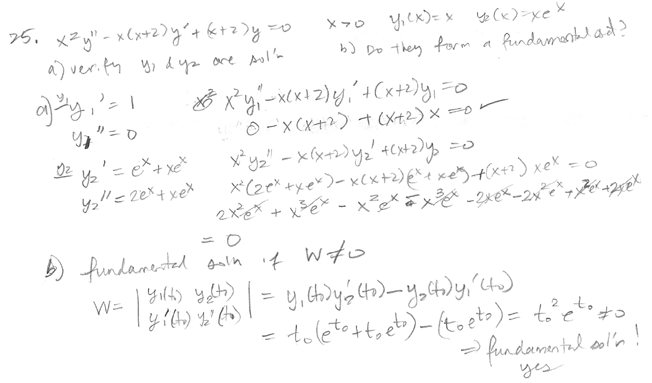 25. x²y" - x(x+2)y' + (x+2)y = 0   x>0   y₁(x) = x   y₂(x) = xeˣ
a) verify y₁ & y₂ are sol'n   b) Do they form a fundamental set?
a) y₁ y₁' = 1   x²y₁" - x(x+2)y₁' + (x+2)y₁ = 0
y₁" = 0   0 - x(x+2) + (x+2)x = 0 ✓
y₂ y₂' = eˣ + xeˣ   x²y₂" - x(x+2)y₂' + (x+2)y₂ = 0
y₂" = 2eˣ + xeˣ   x²(2eˣ + xeˣ) - x(x+2)(eˣ + xeˣ) + (x+2)xeˣ = 0
2x²eˣ + x³eˣ - x²eˣ - x³eˣ - 2xeˣ - 2x²eˣ + x²eˣ + 2xeˣ
= 0
b) fundamental soln if W ≠ 0
W = | y₁(t₀) y₂(t₀) | = y₁(t₀)y₂'(t₀) - y₂(t₀)y₁'(t₀)
| y₁'(t₀) y₂'(t₀) | = t₀(e^t₀ + t₀e^t₀) - (t₀e^t₀) = t₀²e^t₀ ≠ 0
⇒ fundamental sol'n!
yes